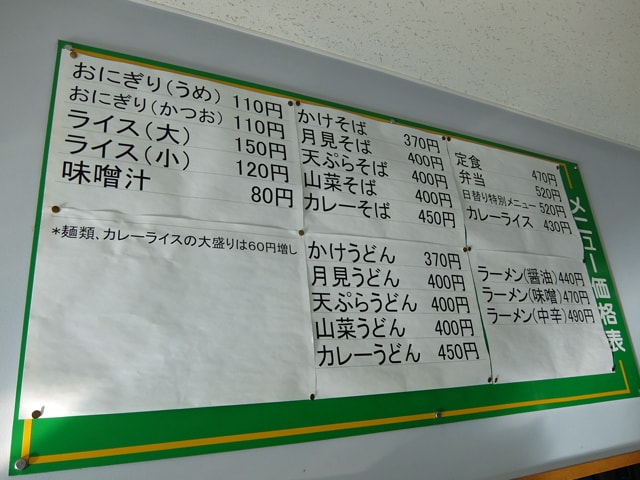 おにぎり(うめ) 110円
おにぎり(かつお) 110円
ライス(大) 150円
ライス(小) 120円
味噌汁 80円
*麺類、カレーライスの大盛りは60円増し
かけそば 370円
月見そば 400円
天ぷらそば 400円
山菜そば 400円
カレーそば 450円
かけうどん 370円
月見うどん 400円
天ぷらうどん 400円
山菜うどん 400円
カレーうどん 450円
定食 470円
弁当 520円
日替り特別メニュー 520円
カレーライス 430円
ラーメン(醤油) 440円
ラーメン(味噌) 470円
ラーメン(中辛) 490円
メニュー価格表